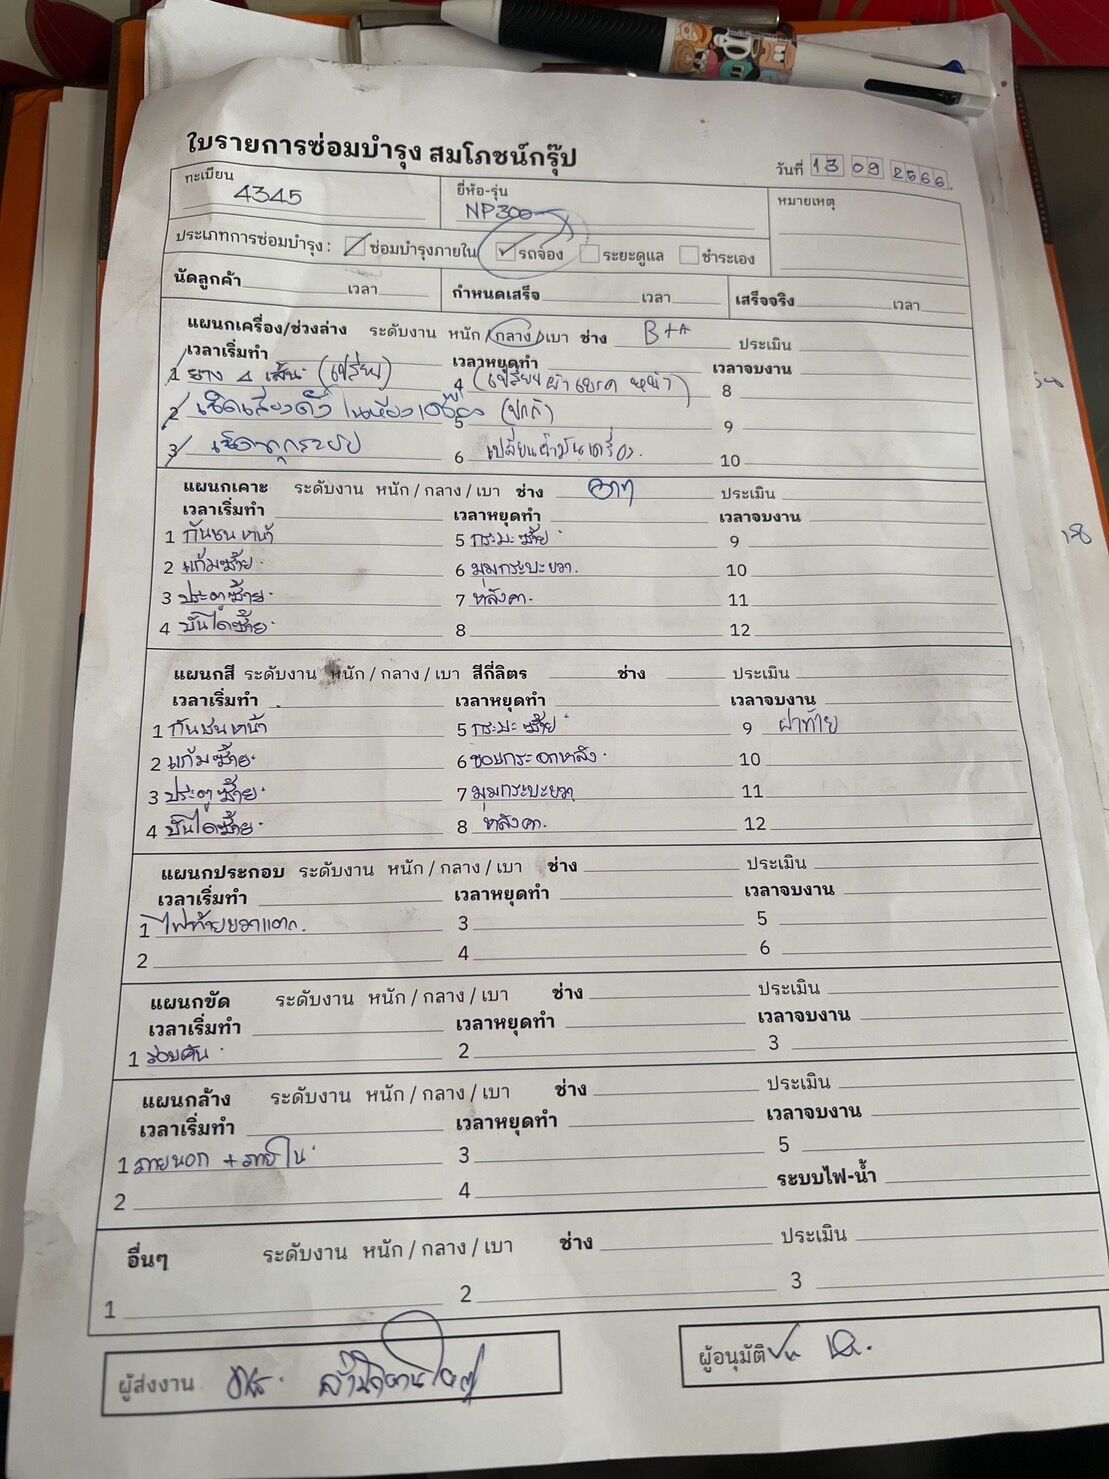 ใบรายการซ่อมบำรุง สมโภชน์กรุ๊ป
วันที่ 13 09 2566
ทะเบียน 4345 ยี่ห้อ-รุ่น NP300 หมายเหตุ
ประเภทการซ่อมบำรุง : ซ่อมบำรุงภายใน รถจอง ระยะดูแล ชำระเอง
นัดลูกค้า เวลา กำหนดเสร็จ เวลา เสร็จจริง เวลา
แผนกเครื่อง/ช่วงล่าง ระดับงาน หนัก / กลาง / เบา ช่าง B+A ประเมิน
เวลาเริ่มทำ เวลาหยุดทำ เวลาจบงาน
1 ยาง 4 เส้น (เปลี่ยน) 4 (เปลี่ยนผ้าเบรค หน้า) 8
2 เช็คเสียงดัง 5 9
3 เช็คทุกระบบ 6 เปลี่ยนน้ำมันเครื่อง. 10
แผนกเคาะ ระดับงาน หนัก / กลาง / เบา ช่าง ประเมิน
เวลาเริ่มทำ เวลาหยุดทำ เวลาจบงาน
1 กันชนหน้า 5 กระบะซ้าย 9
2 แก้มซ้าย 6 มุมกระบะขวา 10
3 ประตูซ้าย 7 หลังคา 11
4 บันไดซ้าย 8 12
แผนกสี ระดับงาน หนัก / กลาง / เบา สีกี่ลิตร ช่าง ประเมิน
เวลาเริ่มทำ เวลาหยุดทำ เวลาจบงาน
1 กันชนหน้า 5 กระบะซ้าย 9 ฝาท้าย
2 แก้มซ้าย 6 ขอบกระจกหลัง 10
3 ประตูซ้าย 7 มุมกระบะขวา 11
4 บันไดซ้าย 8 หลังคา 12
แผนกประกอบ ระดับงาน หนัก / กลาง / เบา ช่าง ประเมิน
เวลาเริ่มทำ เวลาหยุดทำ เวลาจบงาน
1 ไฟท้ายขวาแตก. 3 5
2 4 6
แผนกขัด ระดับงาน หนัก / กลาง / เบา ช่าง ประเมิน
เวลาเริ่มทำ เวลาหยุดทำ เวลาจบงาน
1 รอบคัน 2 3
แผนกล้าง ระดับงาน หนัก / กลาง / เบา ช่าง ประเมิน
เวลาเริ่มทำ เวลาหยุดทำ เวลาจบงาน
1 ภายนอก + ภายใน 3 5
2 4 ระบบไฟ-น้ำ
อื่นๆ ระดับงาน หนัก / กลาง / เบา ช่าง ประเมิน
1 2 3
ผู้ส่งงาน ผู้อนุมัติ